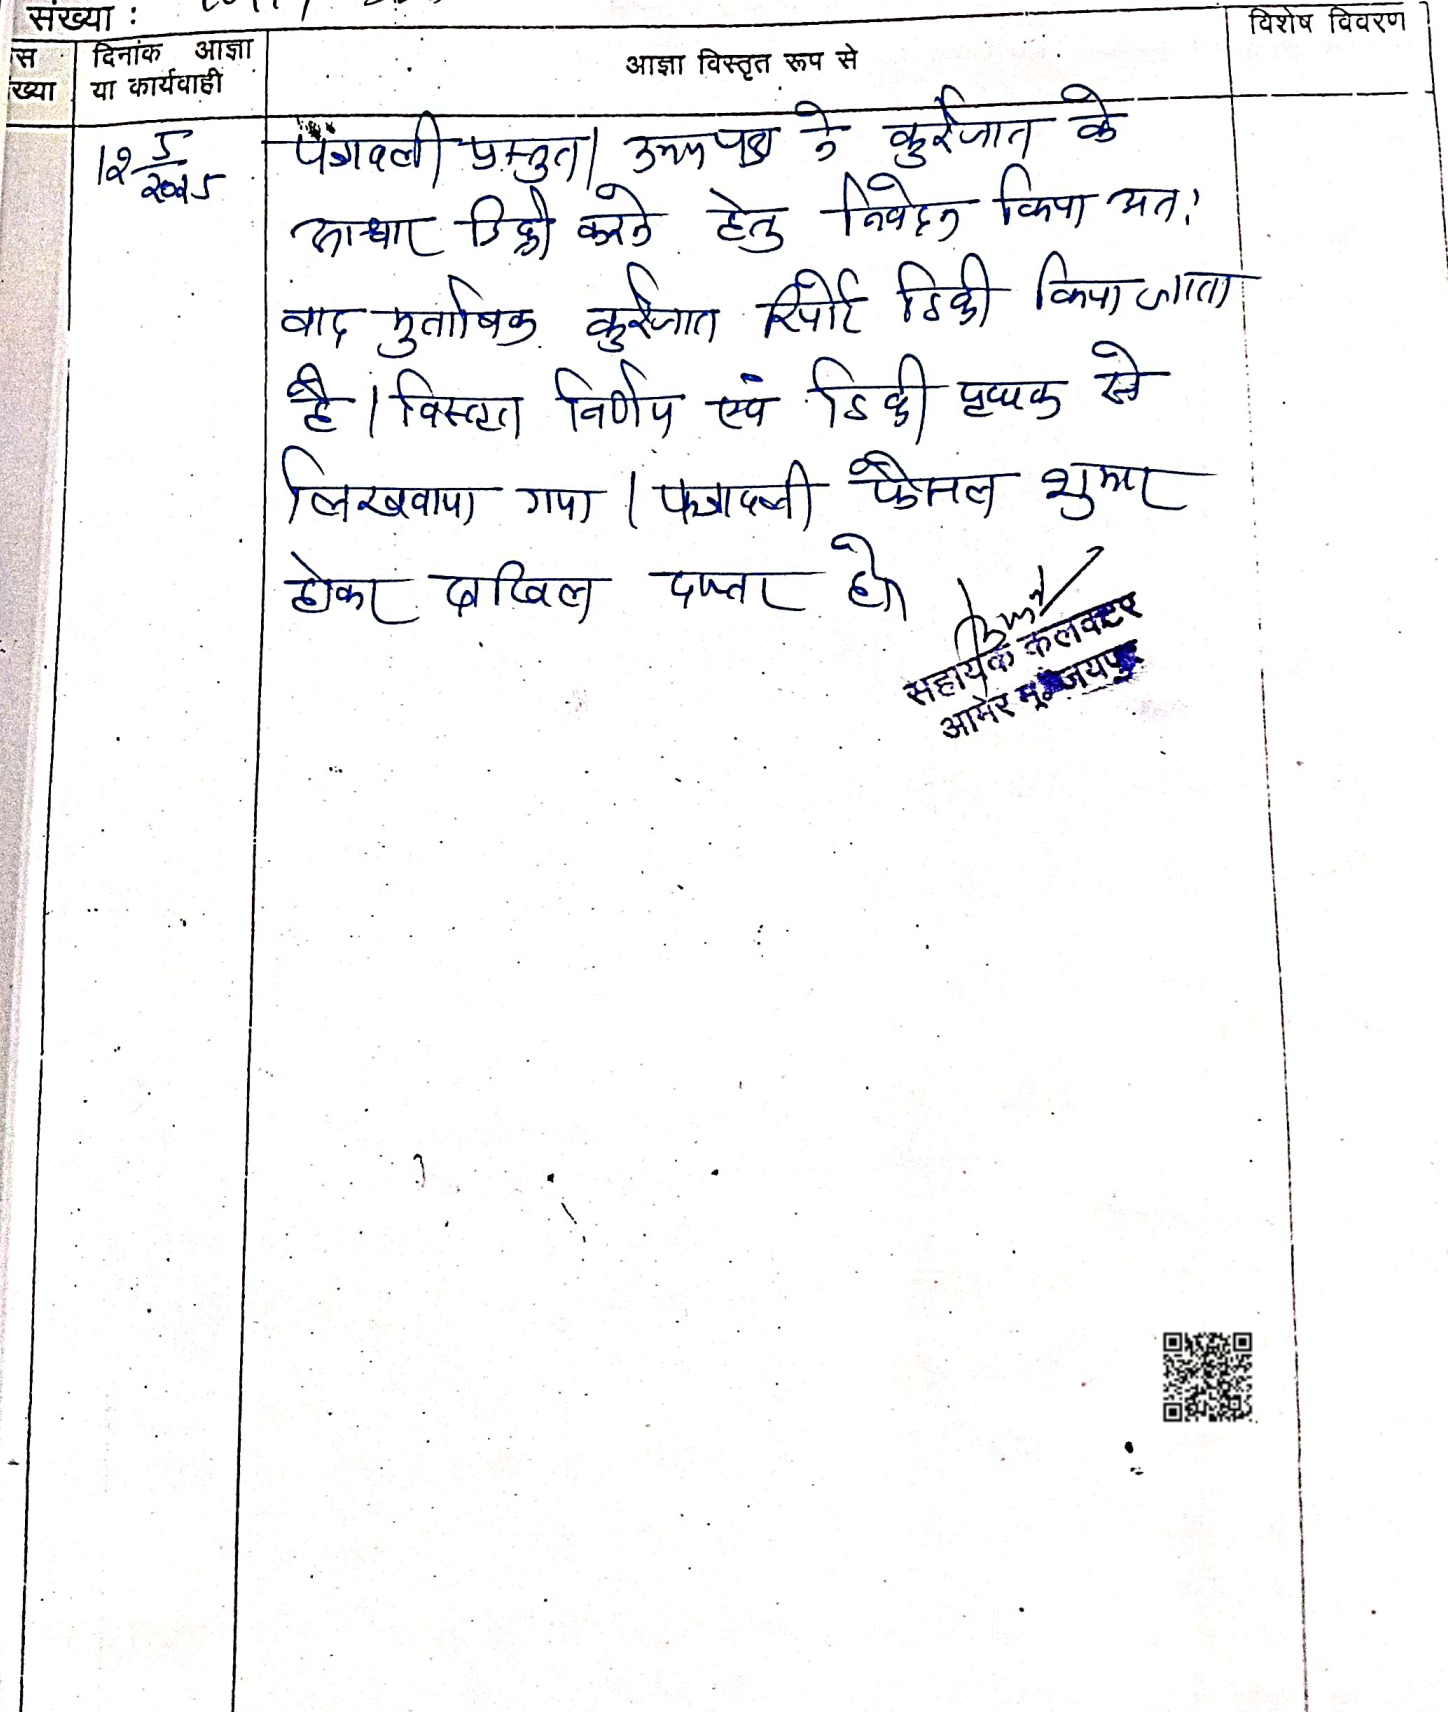 संख्या :
विशेष विवरण
स
ख्या
दिनांक आज्ञा
या कार्यवाही
आज्ञा विस्तृत रूप से
12/5/2025
पत्रावली प्रस्तुत। उभय पक्ष ने कुर्रेजात के
आधार डिक्री करने हेतु निवेदन किया अतः
वाद मुताबिक कुर्रेजात रिपोर्ट डिक्री किया जाता
है। विस्तृत निर्णय एवं डिक्री पृथक से
लिखवाया गया। पत्रावली फैसल शुमार
होकर दाखिल दफ्तर हो।
सहायक कलक्टर
आमेर मु. जयपुर